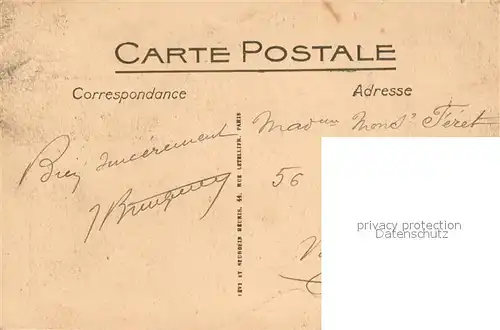 CARTE POSTALE
Correspondance
Adresse
Bien sincèrement
LÉVY ET NEURDEIN RÉUNIS, 44, RUE LETELLIER, PARIS
Madame Monsr Féret
56
privacy protection
Datenschutz